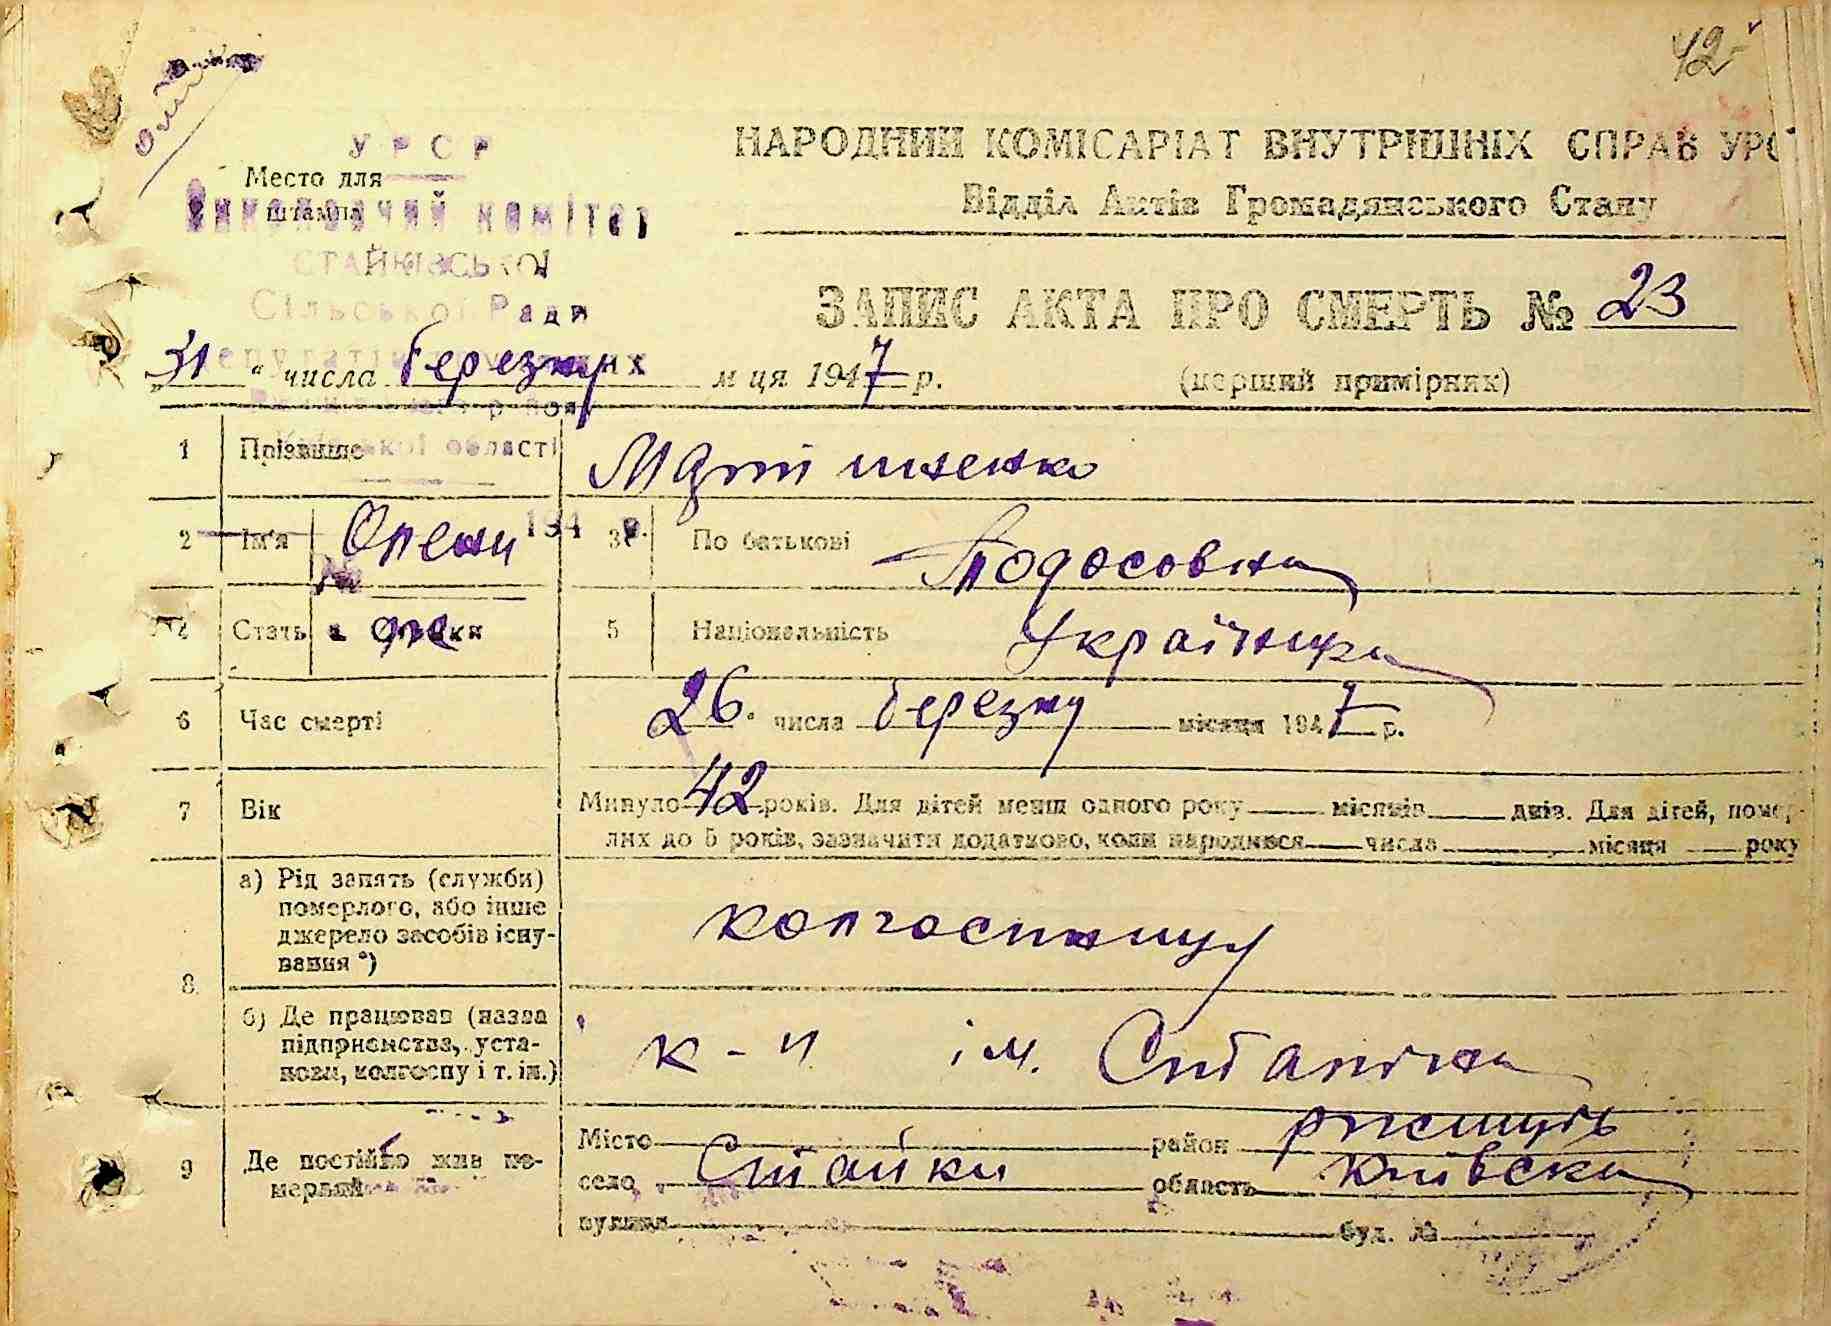 42
У Р С Р
Место для
штампа
Виконавчий комітет
СТАЙКІВСЬКОЇ
Сільської Ради
НАРОДНИЙ КОМІСАРІАТ ВНУТРІШНІХ СПРАВ УРС
Відділ Актів Громадянського Стану
ЗАПИС АКТА ПРО СМЕРТЬ № 23
„31“ числа березня м-ця 1947 р. (перший примірник)
області
1 Прізвище
2 Ім'я Олена 3 По батькові Тодосовна
194 р.
4 Стать 5 Національність Українка
6 Час смерті 26 числа березня місяця 1947 р.
7 Вік Минуло 42 років. Для дітей менш одного року місяців днів. Для дітей, помер-
лих до 5 років, зазначити додатково, коли народився числа місяця року
8 а) Рід занять (служби)
померлого, або інше
джерело засобів існу-
вання *)
колгоспниця
б) Де працював (назва
підприємства, уста-
нови, колгоспу і т. ін.)
к-п ім. Сталіна
9 Де постійно жив по-
мерлий
Місто район
село Стайки область Київска
вулиця буд. №